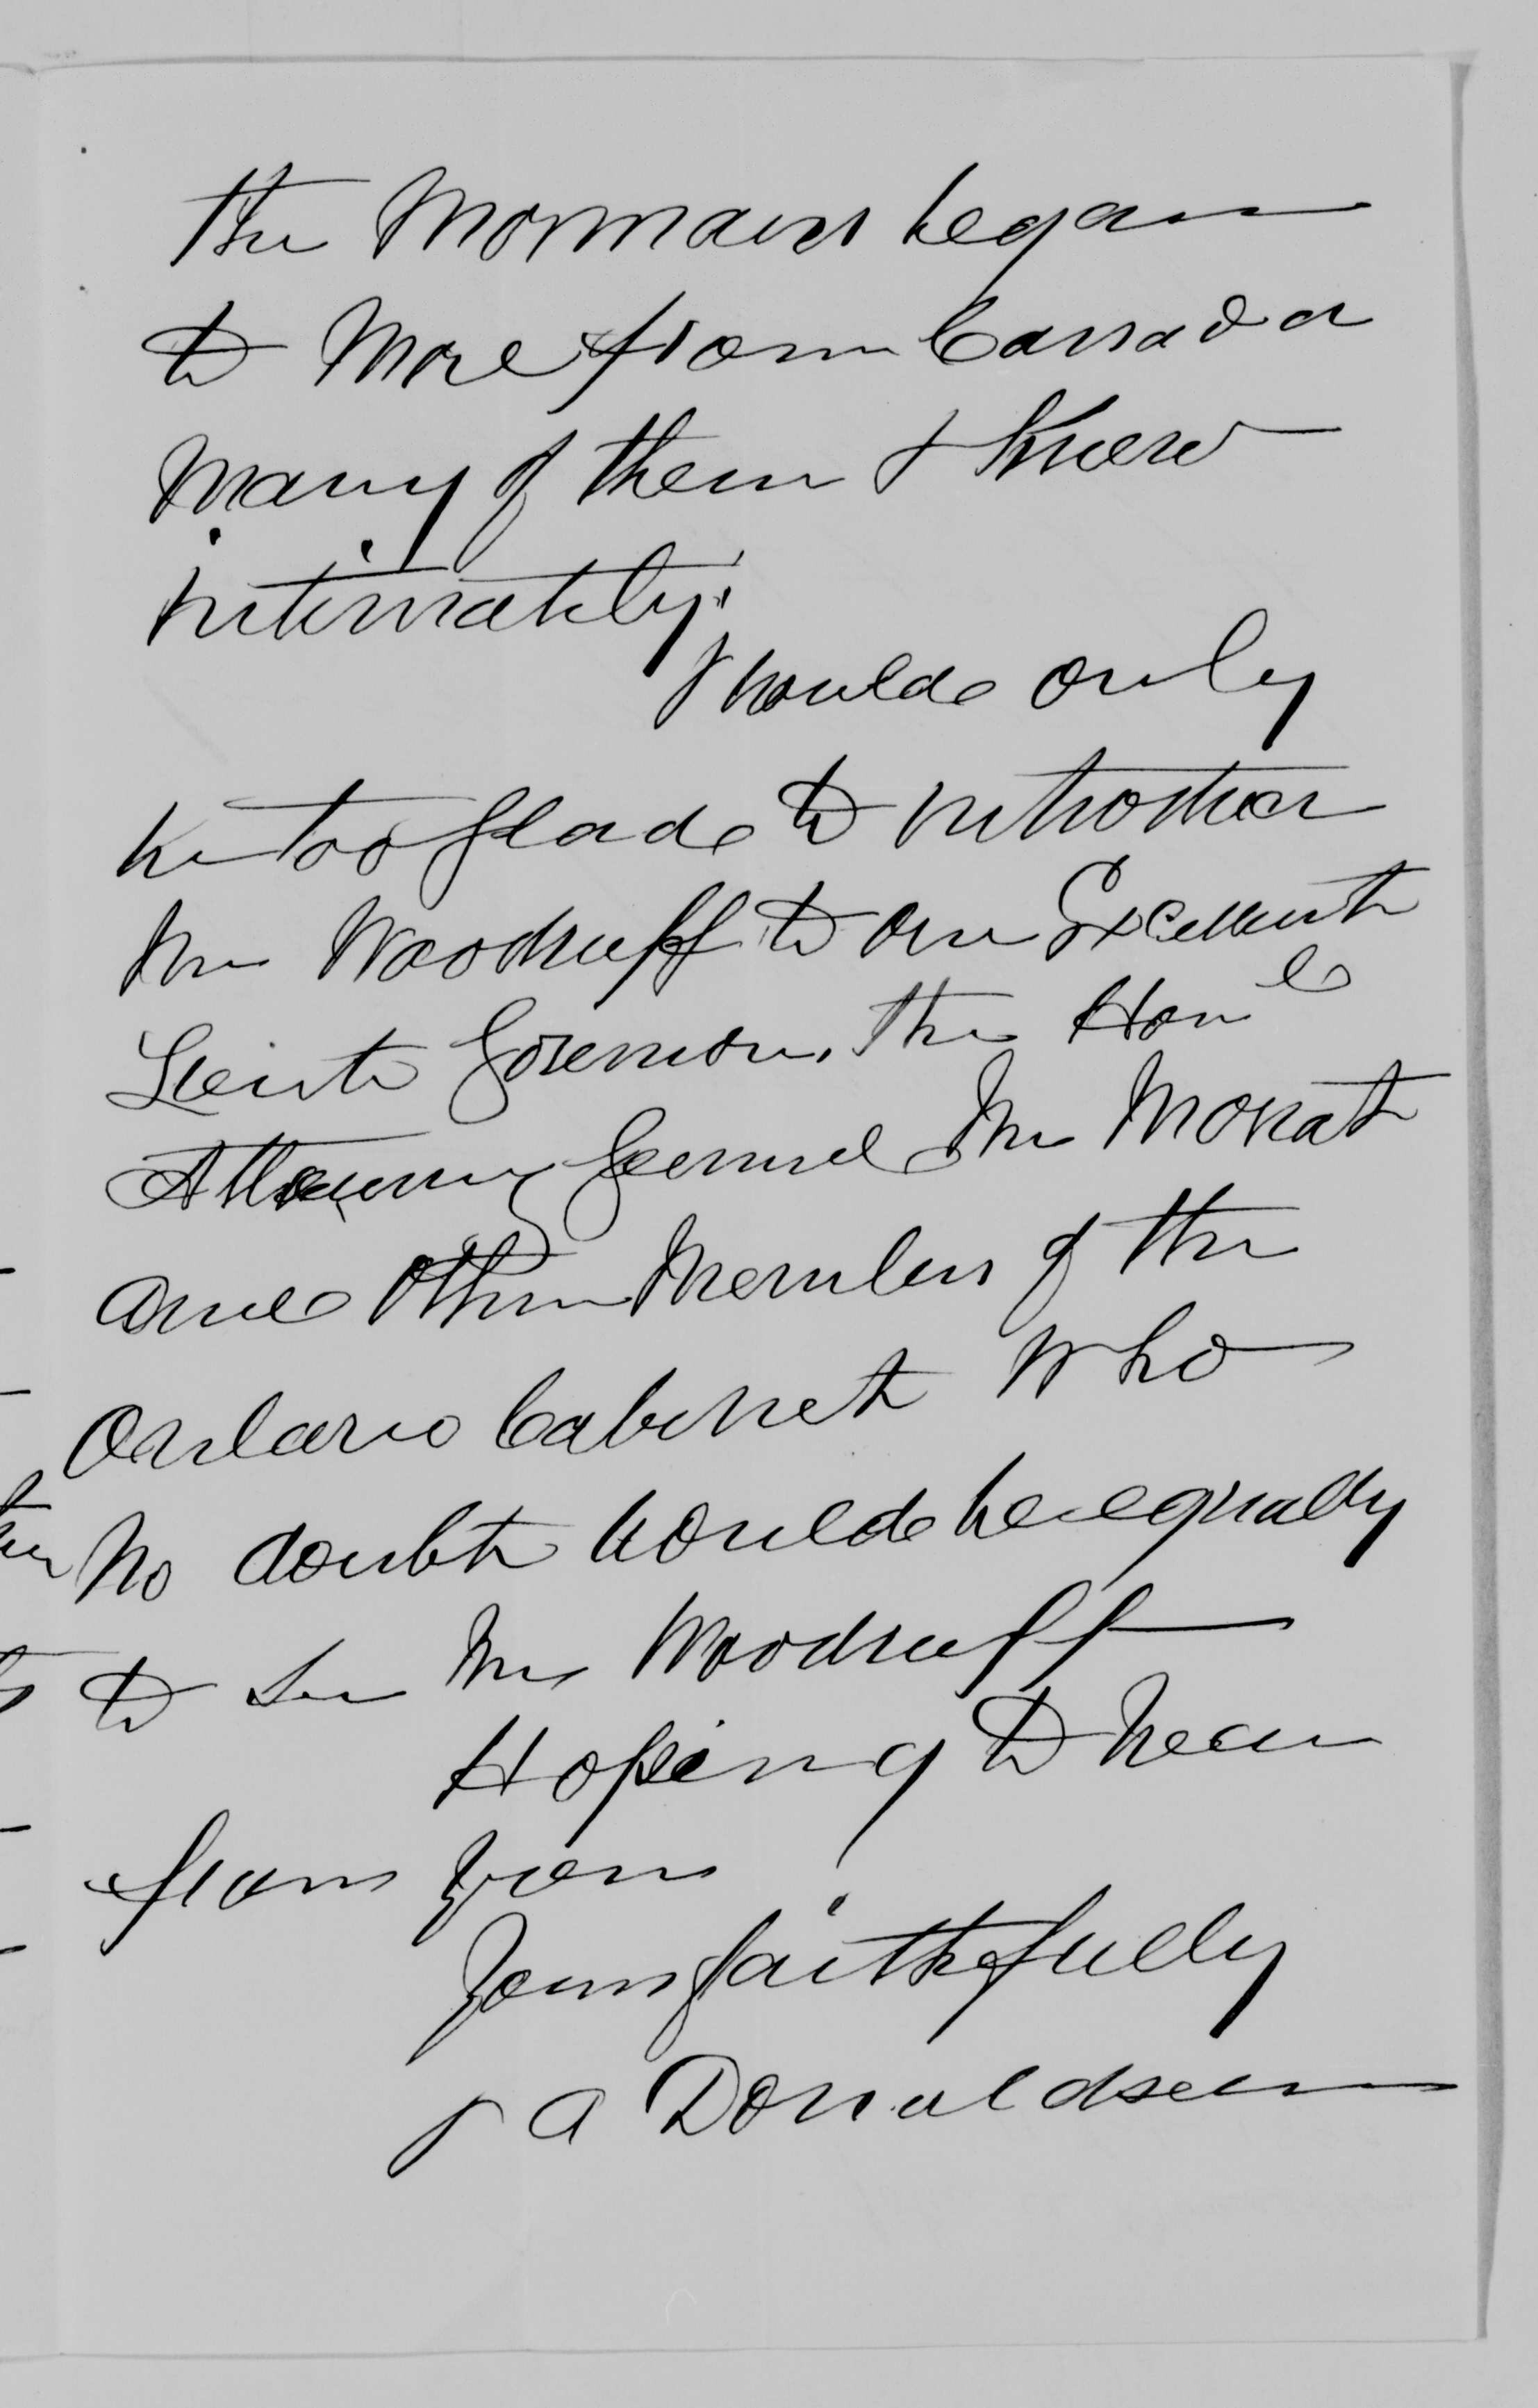 the Mormans began
to Move from Canada
Many of them I knew
intimately.
I would only
be too glad to introduce
Mr Woodruff to our Excellent
Lieut Governor, the Honle
Attorney General Mr Mowat
and Other Members of the
Ontario Cabinet who
No doubt would be equally
to see Mr Woodruff
Hoping to hear
from you
Yours faithfully
J A Donaldson